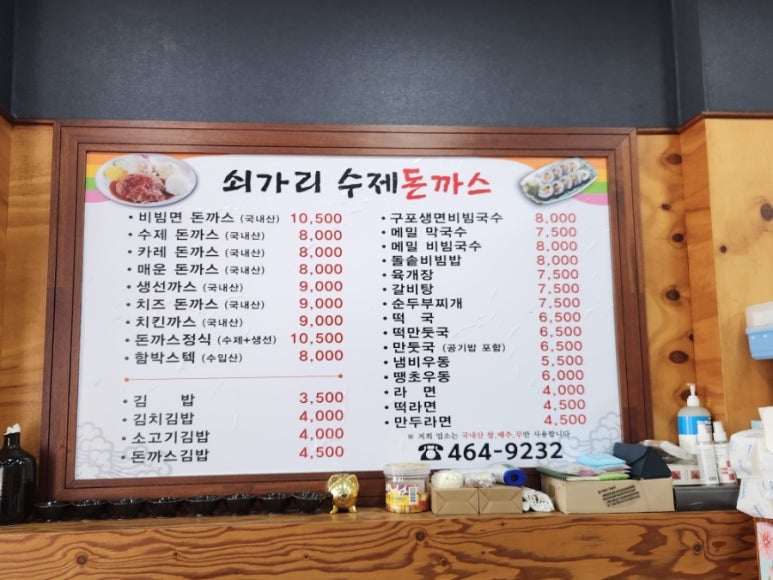 쇠가리 수제돈까스
• 비빔면 돈까스 (국내산) 10,500
• 수제 돈까스 (국내산) 8,000
• 카레 돈까스 (국내산) 8,000
• 매운 돈까스 (국내산) 8,000
• 생선까스 (국내산) 9,000
• 치즈 돈까스 (국내산) 9,000
• 치킨까스 (국내산) 9,000
• 돈까스정식 (수제+생선) 10,500
• 함박스텍 (수입산) 8,000
• 김 밥 3,500
• 김치김밥 4,000
• 소고기김밥 4,000
• 돈까스김밥 4,500
• 구포생면비빔국수 8,000
• 메밀 막국수 7,500
• 메밀 비빔국수 8,000
• 돌솥비빔밥 8,000
• 육개장 7,500
• 갈비탕 7,500
• 순두부찌개 7,500
• 떡 국 6,500
• 떡만둣국 6,500
• 만둣국 (공기밥 포함) 6,500
• 냄비우동 5,500
• 땡초우동 6,000
• 라 면 4,000
• 떡라면 4,500
• 만두라면 4,500
※ 저희 업소는 국내산 쌀,배추,무만 사용합니다
☎464-9232